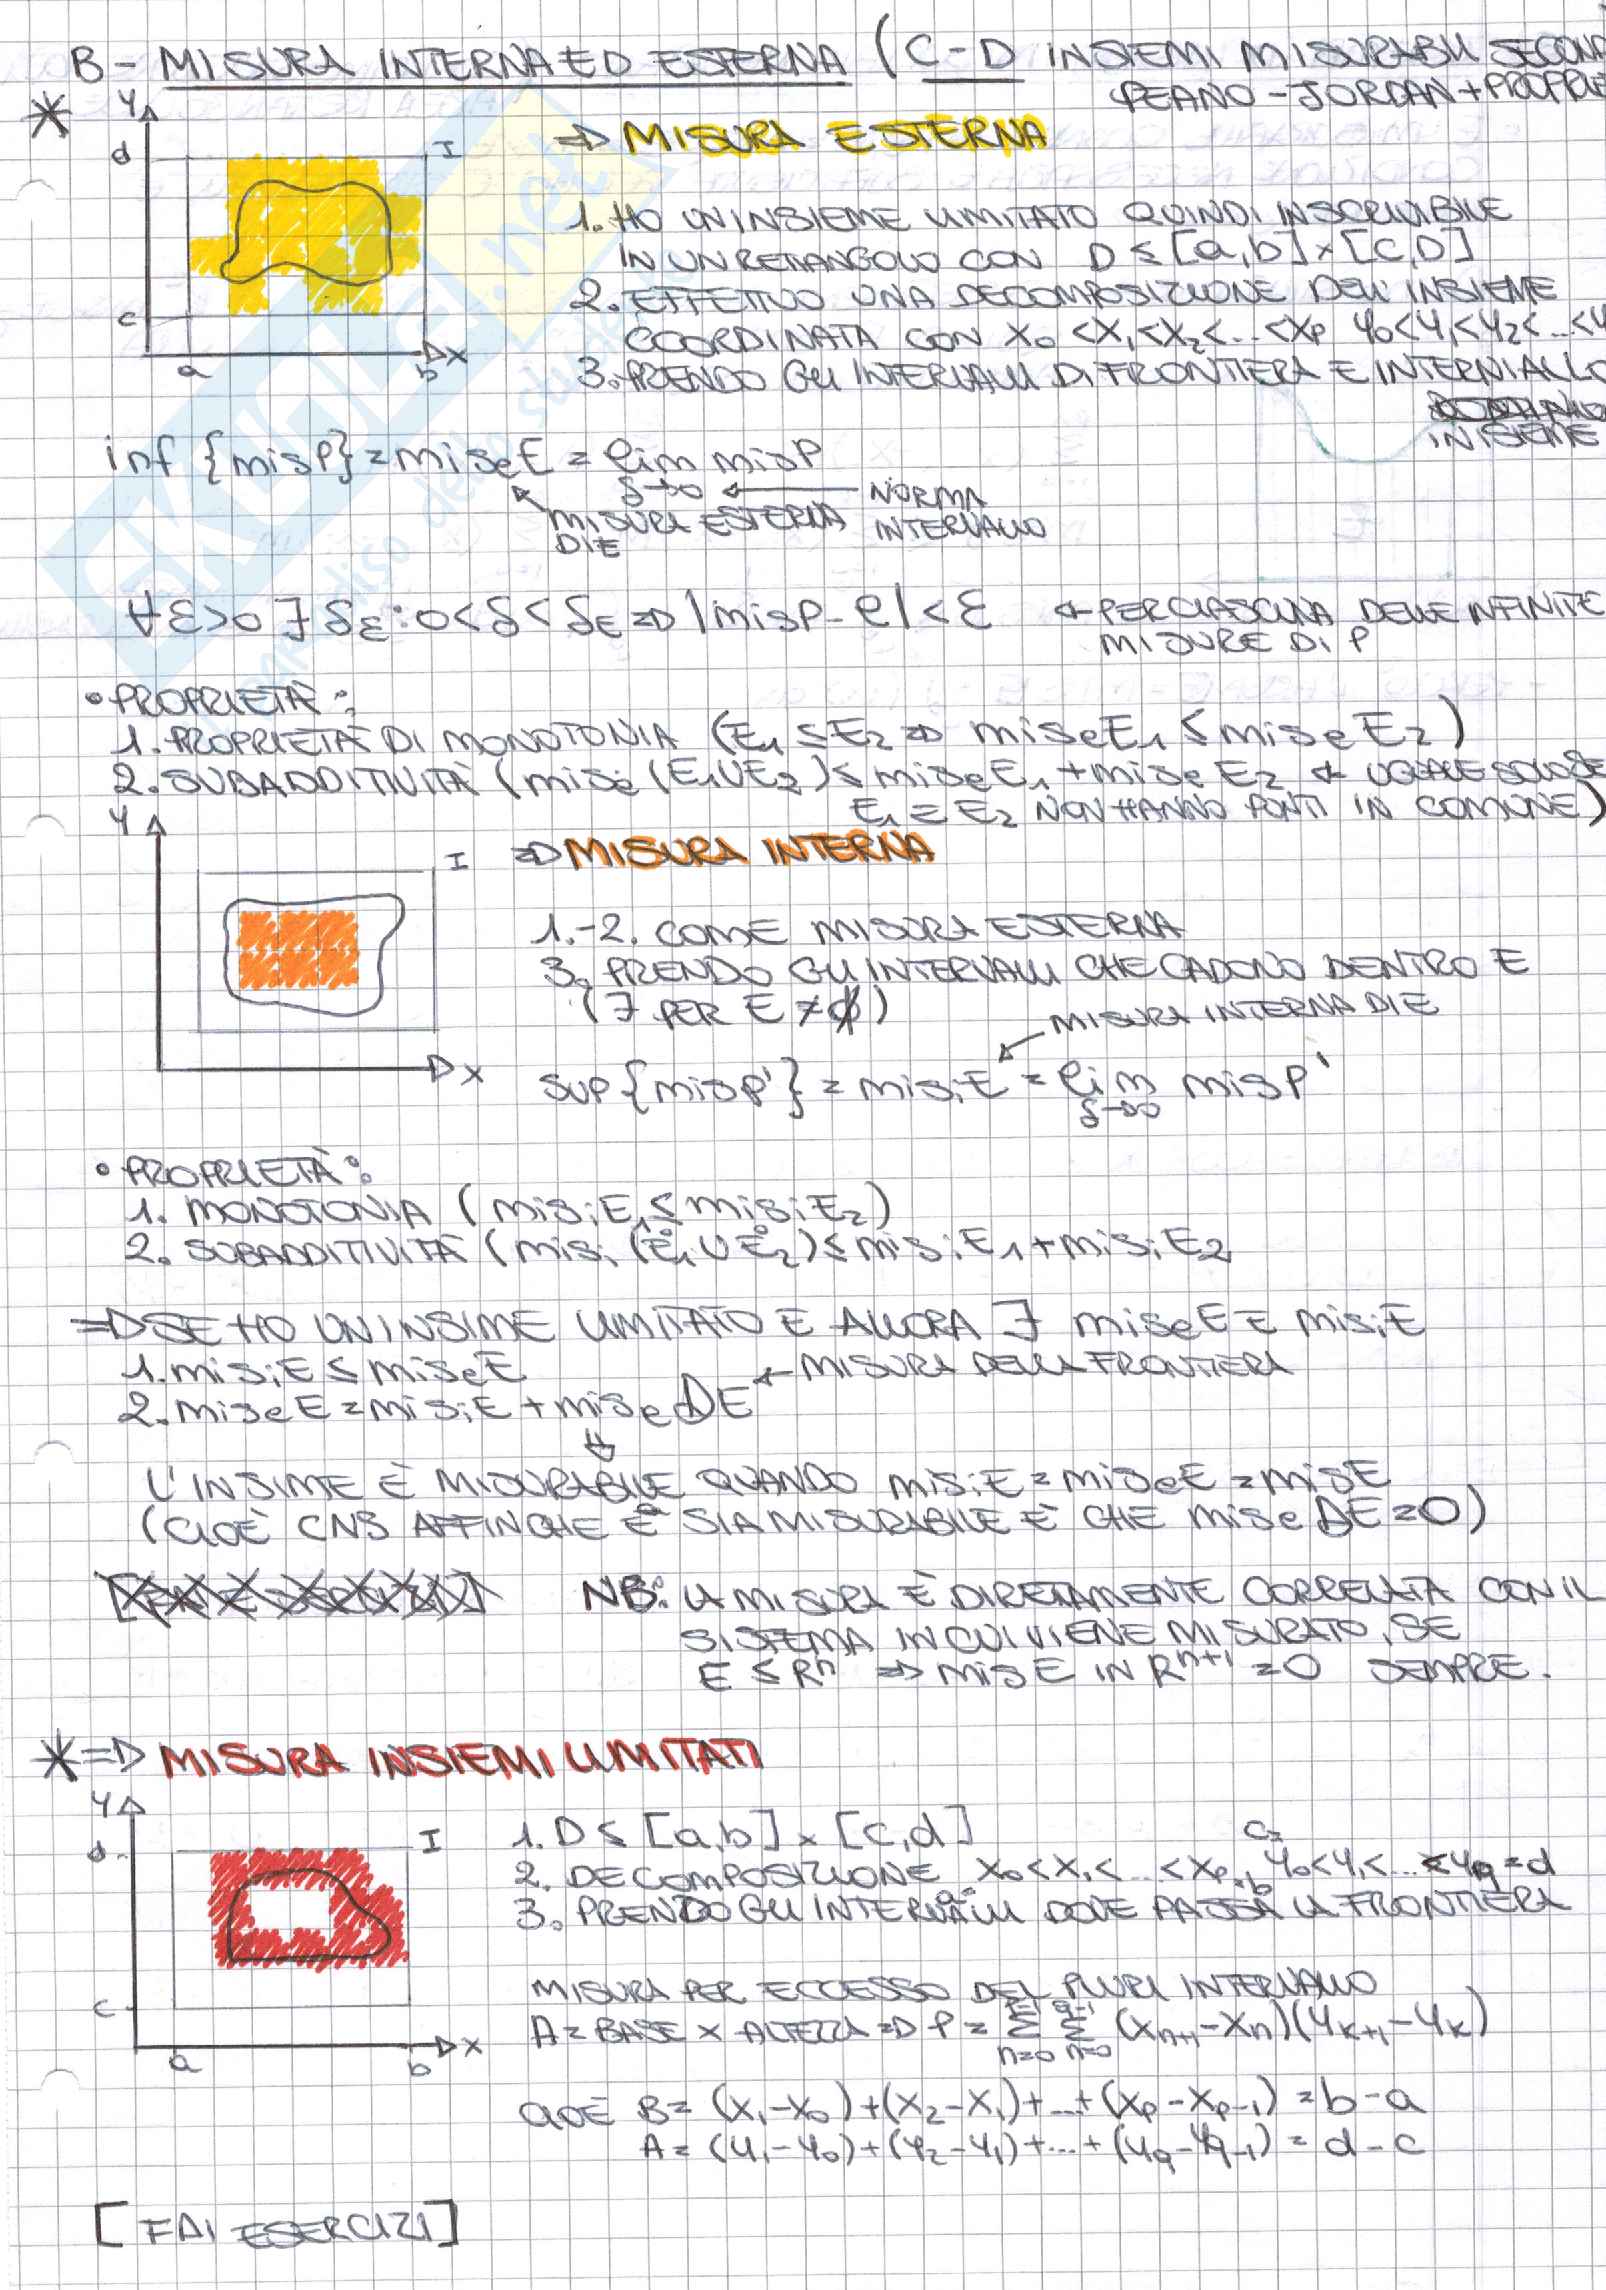 B - MISURA INTERNA ED ESTERNA (C-D INSIEMI MISURABILI SECON
PEANO-JORDAN + PROPRIE
*
y
d
I
c
a
b
x
⇒ MISURA ESTERNA
1. HO UN INSIEME LIMITATO QUINDI INSCRIVIBILE
IN UN RETTANGOLO CON D ≤ [a,b] × [C,D]
2. EFFETTUO UNA DECOMPOSIZIONE DELL'INSIEME
COORDINATA CON x₀ < x₁ < x₂ < ... < xp y₀ < y₁ < y₂ < ... < y
3. PRENDO GLI INTERVALLI DI FRONTIERA E INTERNI ALLO
INSIEME
inf {misP} = miseE = lim misP
δ→0 ← NORMA
INTERVALLO
MISURA ESTERNA
DI E
∀ε>0 ∃ δε : 0<δ<δε ⇒ |misP - l| < ε ← PER CIASCUNA DELLE INFINITE
MISURE DI P
• PROPRIETÀ:
1. PROPRIETÀ DI MONOTONIA (E₁ ≤ E₂ ⇒ miseE₁ ≤ mise E₂)
2. SUBADDITIVITÀ (mise (E₁∪E₂) ≤ miseE₁ + mise E₂ ← UGUALE SOLO SE
E₁ E E₂ NON HANNO PUNTI IN COMUNE)
y
I
x
⇒ MISURA INTERNA
1.-2. COME MISURA ESTERNA
3. PRENDO GLI INTERVALLI CHE CADONO DENTRO E
(∃ PER E ≠ ∅)
MISURA INTERNA DI E
sup{misP'} = misiE = lim misP'
δ→0
• PROPRIETÀ:
1. MONOTONIA (misiE₁ ≤ misiE₂)
2. SUBADDITIVITÀ (misi (E̊₁∪E̊₂) ≤ misiE₁ + misiE₂
⇒ SE HO UN INSIME LIMITATO E ALLORA ∃ miseE E misiE
1. misiE ≤ miseE
← MISURA DELLA FRONTIERA
2. miseE = misiE + mise∂E
⇓
L'INSIME È MISURABILE QUANDO misiE = miseE = misE
(CIOÈ CNS AFFINCHE E SIA MISURABILE È CHE mise ∂E = 0)
NB: LA MISURA È DIRETTAMENTE CORRELATA CON IL
SISTEMA IN CUI VIENE MISURATO, SE
E ≤ Rⁿ ⇒ misE IN Rⁿ⁺¹ = 0 SEMPRE.
* ⇒ MISURA INSIEMI LIMITATI
y
d
I
c
a
b
x
1. D ≤ [a,b] × [c,d]
c=
2. DECOMPOSIZIONE x₀ < x₁ < ... < xp=b, y₀ < y₁ < ... < yq = d
3. PRENDO GLI INTERVALLI DOVE PASSA LA FRONTIERA
MISURA PER ECCESSO DEL PLURI INTERVALLO
A = BASE × ALTEZZA ⇒ P = Σ Σ (xn+1 - xn)(yk+1 - yk)
n=0 n=0
CIOÈ B = (x₁ - x₀) + (x₂ - x₁) + ... + (xp - xp-1) = b - a
A = (y₁ - y₀) + (y₂ - y₁) + ... + (yq - yq-1) = d - c
[FAI ESERCIZI]
SKUOLA.net